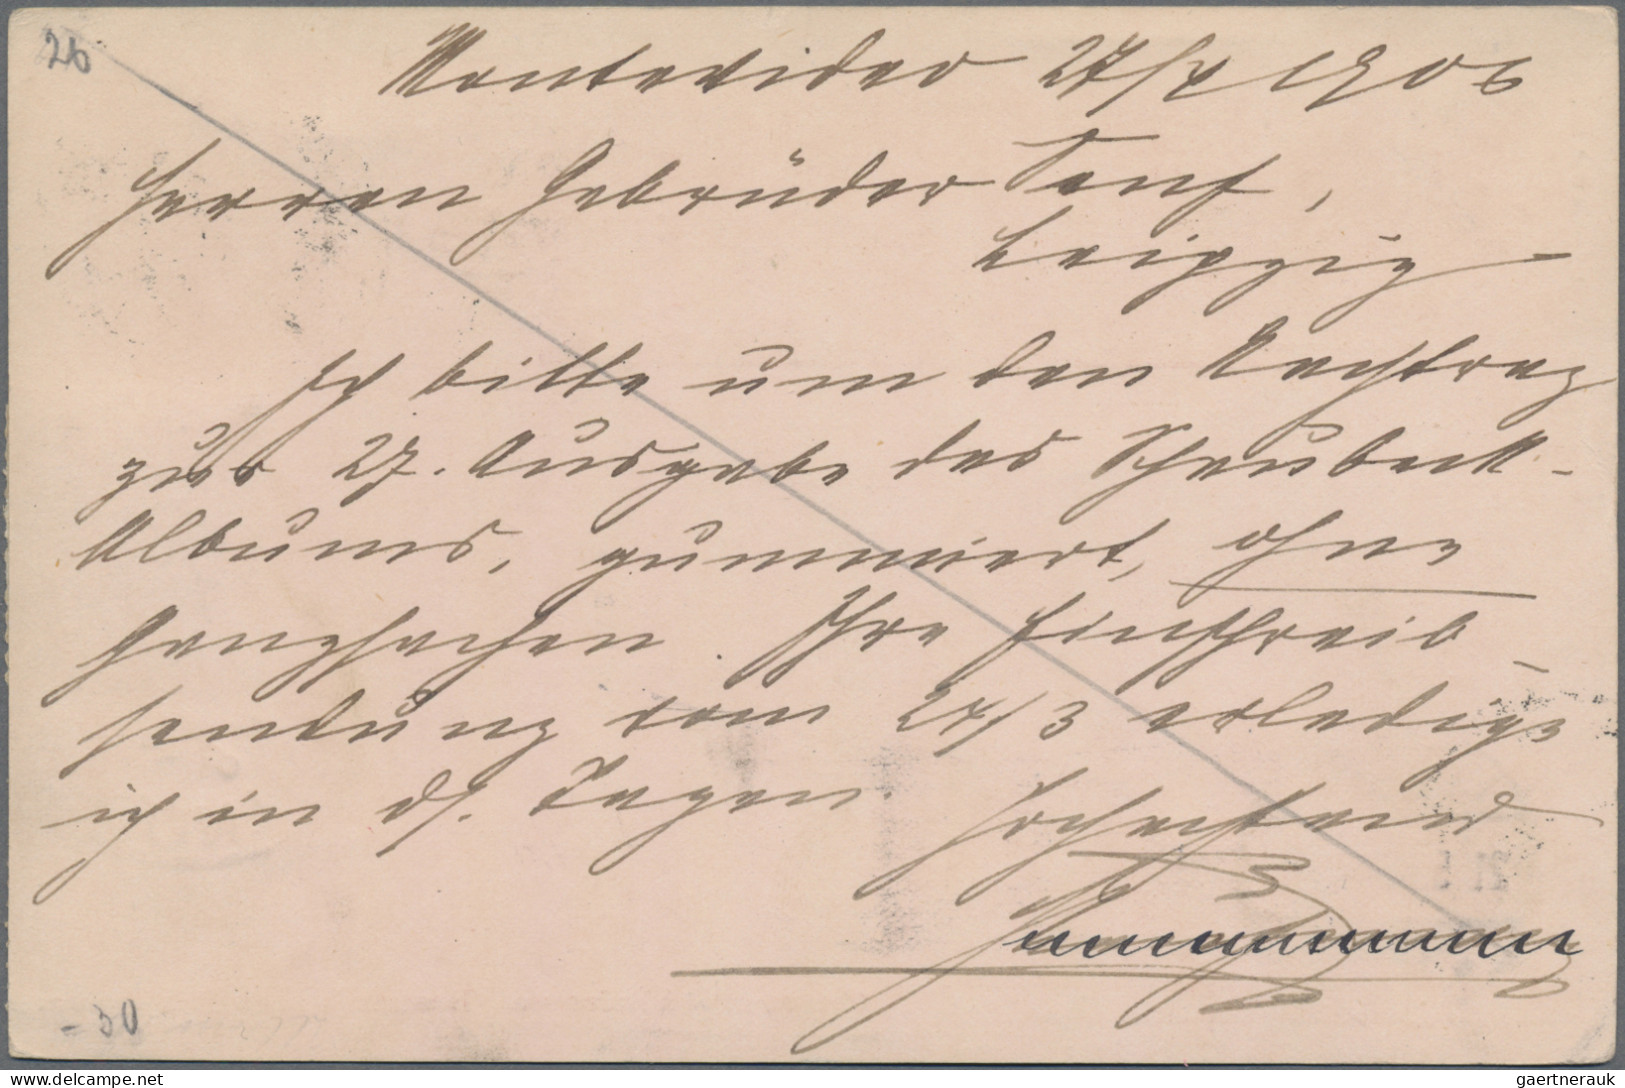 26
Montevideo 27/4 1906
Herren Gebrüder Senf,
Leipzig
Ich bitte um den Nachtrag
zur 27. Ausgabe des Schaubeck-
Albums, gummiert, ohne
Ganzsachen. Ihre Einschreib-
sendung vom 24/3 erledige
ich in ds. Tagen.
Hochachtend
-30
www.delcampe.net
gaertnerauk